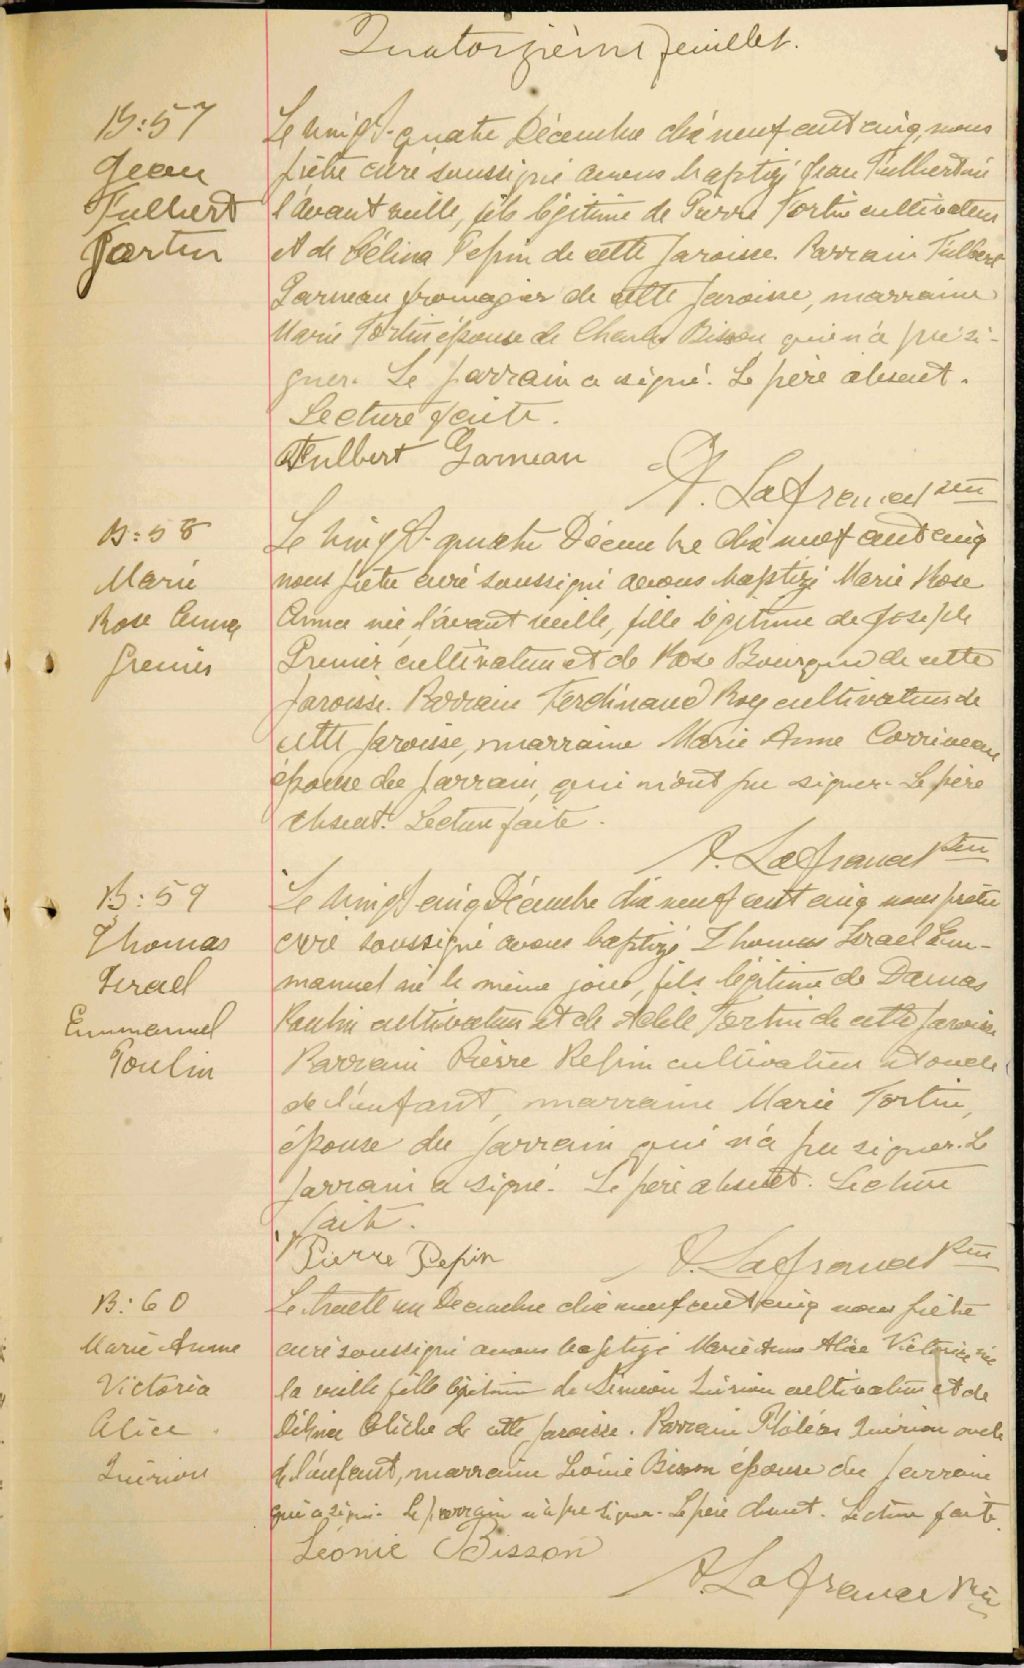 Quatorzième feuillet.
B: 57
Jean
Fulbert
Fortin
Le vingt-quatre Décembre dix neuf cent cinq, nous
prêtre curé soussigné avons baptizé Jean Fulbert né
l'avant veille, fils légitime de Pierre Fortin cultivateur
et de Célina Pepin de cette paroisse. Parrain Fulbert
Garneau fromager de cette paroisse, marraine
Marie Fortin épouse de Charles Bisson qui n'a pu si-
gner. Le parrain a signé. Le père absent.
Lecture faite.
Fulbert Garneau
A. Lafrance ptre
B: 58
Marie
Rose Anna
Grenier
Le vingt-quatre Décembre dix neuf cent cinq
nous prêtre curé soussigné avons baptizé Marie Rose
Anna née l'avant veille, fille légitime de Joseph
Grenier cultivateur et de Rose Bourque de cette
paroisse. Parrain Ferdinand Roy cultivateur de
cette paroisse, marraine Marie Anne Corriveau
épouse du parrain, qui n'ont pu signer. Le père
absent. Lecture faite.
A. Lafrance ptre
B: 59
Thomas
Israel
Emmanuel
Poulin
Le vingt cinq Décembre dix neuf cent cinq nous prêtre
curé soussigné avons baptizé Thomas Israel Em-
manuel né le même jour, fils légitime de Damas
Poulin cultivateur et de Adèle Fortin de cette paroisse
Parrain Pierre Pepin cultivateur et oncle
de l'enfant, marraine Marie Fortin,
épouse du parrain qui n'a pu signer. Le
parrain a signé. Le père absent. Lecture
faite.
Pierre Pepin
A. Lafrance ptre
B: 60
Marie Anne
Victoria
Alice.
Quirion
Le trente un Décembre dix neuf cent cinq nous prêtre
curé soussigné avons baptizé Marie Anne Alice Victoria née
la veille fille légitime de Siméon Quirion cultivateur et de
Délina Cliche de cette paroisse. Parrain Philéas Quirion oncle
de l'enfant, marraine Léonie Bisson épouse du parrain
qui a signé. Le parrain n'a pu signer. Le père absent. Lecture faite.
Leonie Bisson
A. Lafrance ptre